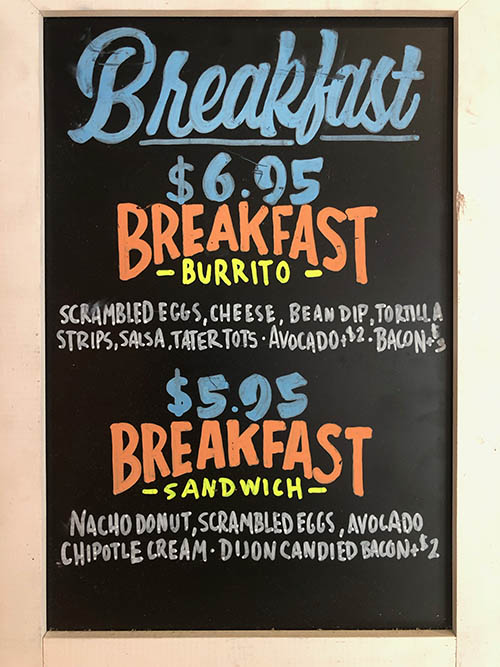 Breakfast
$6.95
BREAKFAST
- BURRITO -
SCRAMBLED EGGS, CHEESE, BEAN DIP, TORTILLA
STRIPS, SALSA, TATER TOTS · AVOCADO+$2 · BACON+$3
$5.95
BREAKFAST
- SANDWICH -
NACHO DONUT, SCRAMBLED EGGS, AVOCADO
CHIPOTLE CREAM · DIJON CANDIED BACON+$2